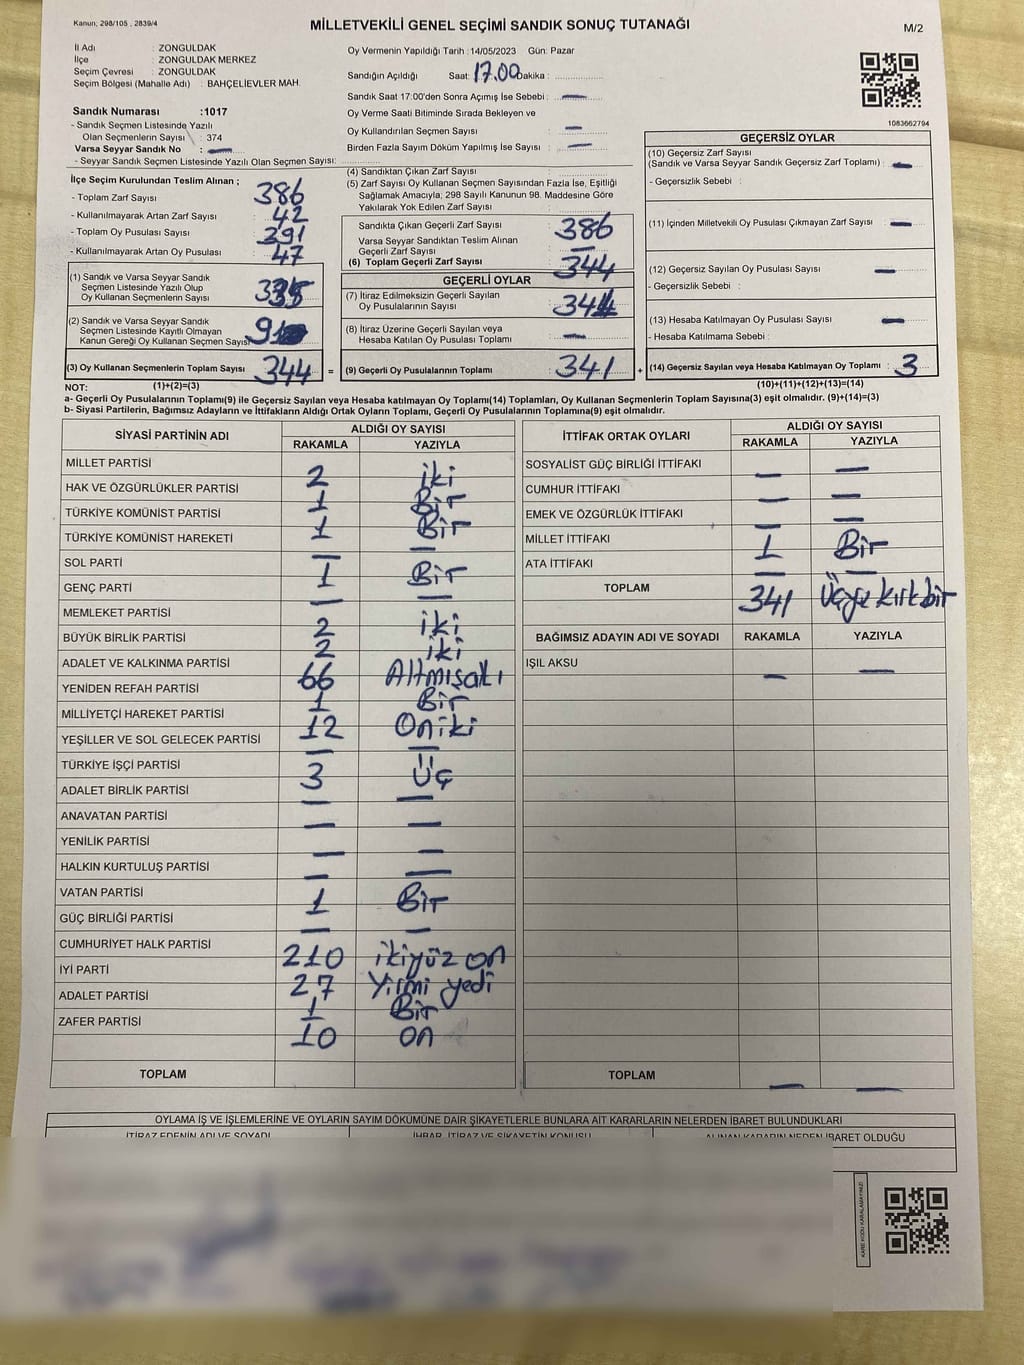 Kanun; 298/105 , 2839/4
MİLLETVEKİLİ GENEL SEÇİMİ SANDIK SONUÇ TUTANAĞI
M/2
İl Adı : ZONGULDAK
İlçe : ZONGULDAK MERKEZ
Seçim Çevresi : ZONGULDAK
Seçim Bölgesi (Mahalle Adı) : BAHÇELİEVLER MAH.
Sandık Numarası :1017
- Sandık Seçmen Listesinde Yazılı
Olan Seçmenlerin Sayısı : 374
Varsa Seyyar Sandık No : —
- Seyyar Sandık Seçmen Listesinde Yazılı Olan Seçmen Sayısı:
Oy Vermenin Yapıldığı Tarih :14/05/2023 Gün: Pazar
Sandığın Açıldığı Saat: 17.00 Dakika :
Sandık Saat 17:00'den Sonra Açımış İse Sebebi : —
Oy Verme Saati Bitiminde Sırada Bekleyen ve
Oy Kullandırılan Seçmen Sayısı : —
Birden Fazla Sayım Döküm Yapılmış İse Sayısı : —
1083662794
İlçe Seçim Kurulundan Teslim Alınan ;
- Toplam Zarf Sayısı : 386
- Kullanılmayarak Artan Zarf Sayısı : 42
- Toplam Oy Pusulası Sayısı : 391
- Kullanılmayarak Artan Oy Pusulası : 47
(1) Sandık ve Varsa Seyyar Sandık
Seçmen Listesinde Yazılı Olup
Oy Kullanan Seçmenlerin Sayısı : 335
(2) Sandık ve Varsa Seyyar Sandık
Seçmen Listesinde Kayıtlı Olmayan
Kanun Gereği Oy Kullanan Seçmen Sayısı : 9
(3) Oy Kullanan Seçmenlerin Toplam Sayısı : 344 =
(4) Sandıktan Çıkan Zarf Sayısı :
(5) Zarf Sayısı Oy Kullanan Seçmen Sayısından Fazla İse, Eşitliği
Sağlamak Amacıyla; 298 Sayılı Kanunun 98. Maddesine Göre
Yakılarak Yok Edilen Zarf Sayısı :
Sandıkta Çıkan Geçerli Zarf Sayısı : 386
Varsa Seyyar Sandıktan Teslim Alınan
Geçerli Zarf Sayısı : —
(6) Toplam Geçerli Zarf Sayısı : 344
GEÇERLİ OYLAR
(7) İtiraz Edilmeksizin Geçerli Sayılan
Oy Pusulalarının Sayısı : 344
(8) İtiraz Üzerine Geçerli Sayılan veya
Hesaba Katılan Oy Pusulası Toplamı : —
(9) Geçerli Oy Pusulalarının Toplamı : 341 +
GEÇERSİZ OYLAR
(10) Geçersiz Zarf Sayısı
(Sandık ve Varsa Seyyar Sandık Geçersiz Zarf Toplamı) : —
- Geçersizlik Sebebi :
(11) İçinden Milletvekili Oy Pusulası Çıkmayan Zarf Sayısı : —
(12) Geçersiz Sayılan Oy Pusulası Sayısı : —
- Geçersizlik Sebebi :
(13) Hesaba Katılmayan Oy Pusulası Sayısı : —
- Hesaba Katılmama Sebebi :
(14) Geçersiz Sayılan veya Hesaba Katılmayan Oy Toplamı : 3
NOT: (1)+(2)=(3) (10)+(11)+(12)+(13)=(14)
a- Geçerli Oy Pusulalarının Toplamı(9) ile Geçersiz veya Hesaba katılmayan Oy Toplamı(14) Toplamları, Oy Kullanan Seçmenlerin Toplam Sayısına(3) eşit olmalıdır. (9)+(14)=(3)
b- Siyasi Partilerin, Bağımsız Adayların ve İttifakların Aldığı Ortak Oyların Toplamı, Geçerli Oy Pusulalarının Toplamına(9) eşit olmalıdır.
SİYASİ PARTİNİN ADI ALDIĞI OY SAYISI
RAKAMLA YAZIYLA
MİLLET PARTİSİ 2 iki
HAK VE ÖZGÜRLÜKLER PARTİSİ 1 Bir
TÜRKİYE KOMÜNİST PARTİSİ 1 Bir
TÜRKİYE KOMÜNİST HAREKETİ — —
SOL PARTİ 1 Bir
GENÇ PARTİ — —
MEMLEKET PARTİSİ 2 iki
BÜYÜK BİRLİK PARTİSİ 2 iki
ADALET VE KALKINMA PARTİSİ 66 Altmışaltı
YENİDEN REFAH PARTİSİ 1 Bir
MİLLİYETÇİ HAREKET PARTİSİ 12 Oniki
YEŞİLLER VE SOL GELECEK PARTİSİ — —
TÜRKİYE İŞÇİ PARTİSİ 3 Üç
ADALET BİRLİK PARTİSİ — —
ANAVATAN PARTİSİ — —
YENİLİK PARTİSİ — —
HALKIN KURTULUŞ PARTİSİ — —
VATAN PARTİSİ 1 Bir
GÜÇ BİRLİĞİ PARTİSİ — —
CUMHURİYET HALK PARTİSİ 210 ikiyüz on
İYİ PARTİ 27 Yirmi yedi
ADALET PARTİSİ 1 Bir
ZAFER PARTİSİ 10 on
TOPLAM
İTTİFAK ORTAK OYLARI ALDIĞI OY SAYISI
RAKAMLA YAZIYLA
SOSYALİST GÜÇ BİRLİĞİ İTTİFAKI — —
CUMHUR İTTİFAKI — —
EMEK VE ÖZGÜRLÜK İTTİFAKI — —
MİLLET İTTİFAKI 1 Bir
ATA İTTİFAKI — —
TOPLAM 341 Üçyüz kırkbir
BAĞIMSIZ ADAYIN ADI VE SOYADI RAKAMLA YAZIYLA
IŞIL AKSU — —
TOPLAM — —
OYLAMA İŞ VE İŞLEMLERİNE VE OYLARIN SAYIM DÖKÜMÜNE DAİR ŞİKAYETLERLE BUNLARA AİT KARARLARIN NELERDEN İBARET BULUNDUKLARI
İTİRAZ EDENİN ADI VE SOYADI İHBAR, İTİRAZ VE ŞİKAYETİN KONUSU ALINAN KARARIN NEDEN İBARET OLDUĞU
KARE KODU KARALAMAYINIZ!